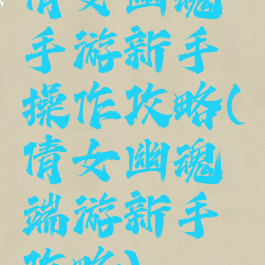 倩女幽魂
手游新手
操作攻略(
倩女幽魂
端游新手
攻略)